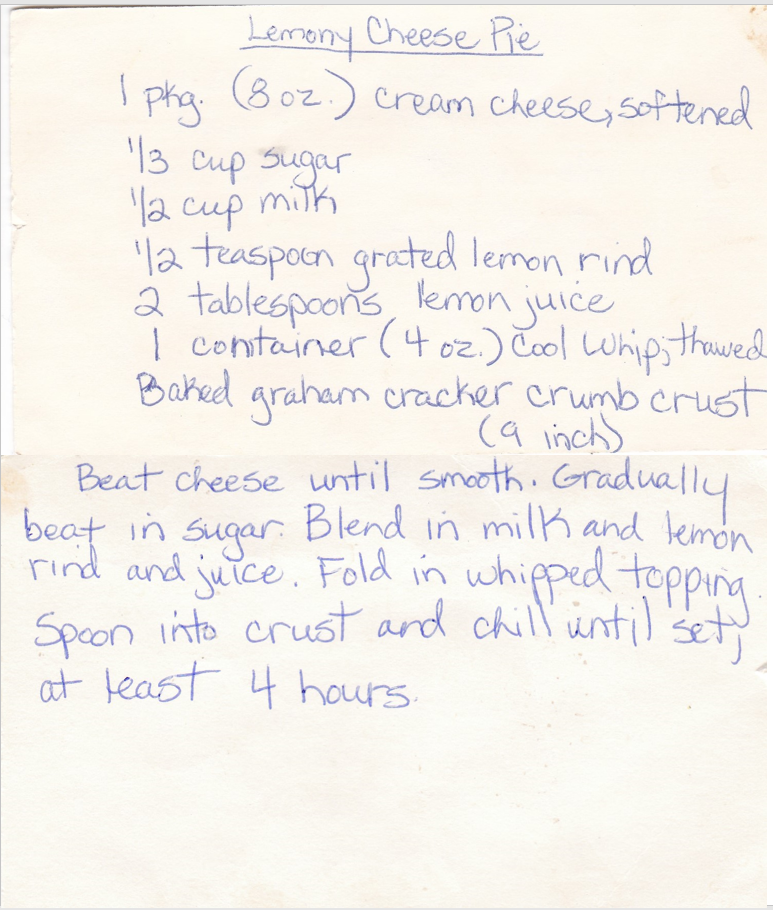 Lemony Cheese Pie
1 pkg. (8 oz.) cream cheese, softened
1/3 cup sugar
1/2 cup milk
1/2 teaspoon grated lemon rind
2 tablespoons lemon juice
1 container (4 oz.) Cool Whip, thawed
Baked graham cracker crumb crust
(9 inch)
Beat cheese until smooth. Gradually
beat in sugar. Blend in milk and lemon
rind and juice. Fold in whipped topping.
Spoon into crust and chill until set,
at least 4 hours.